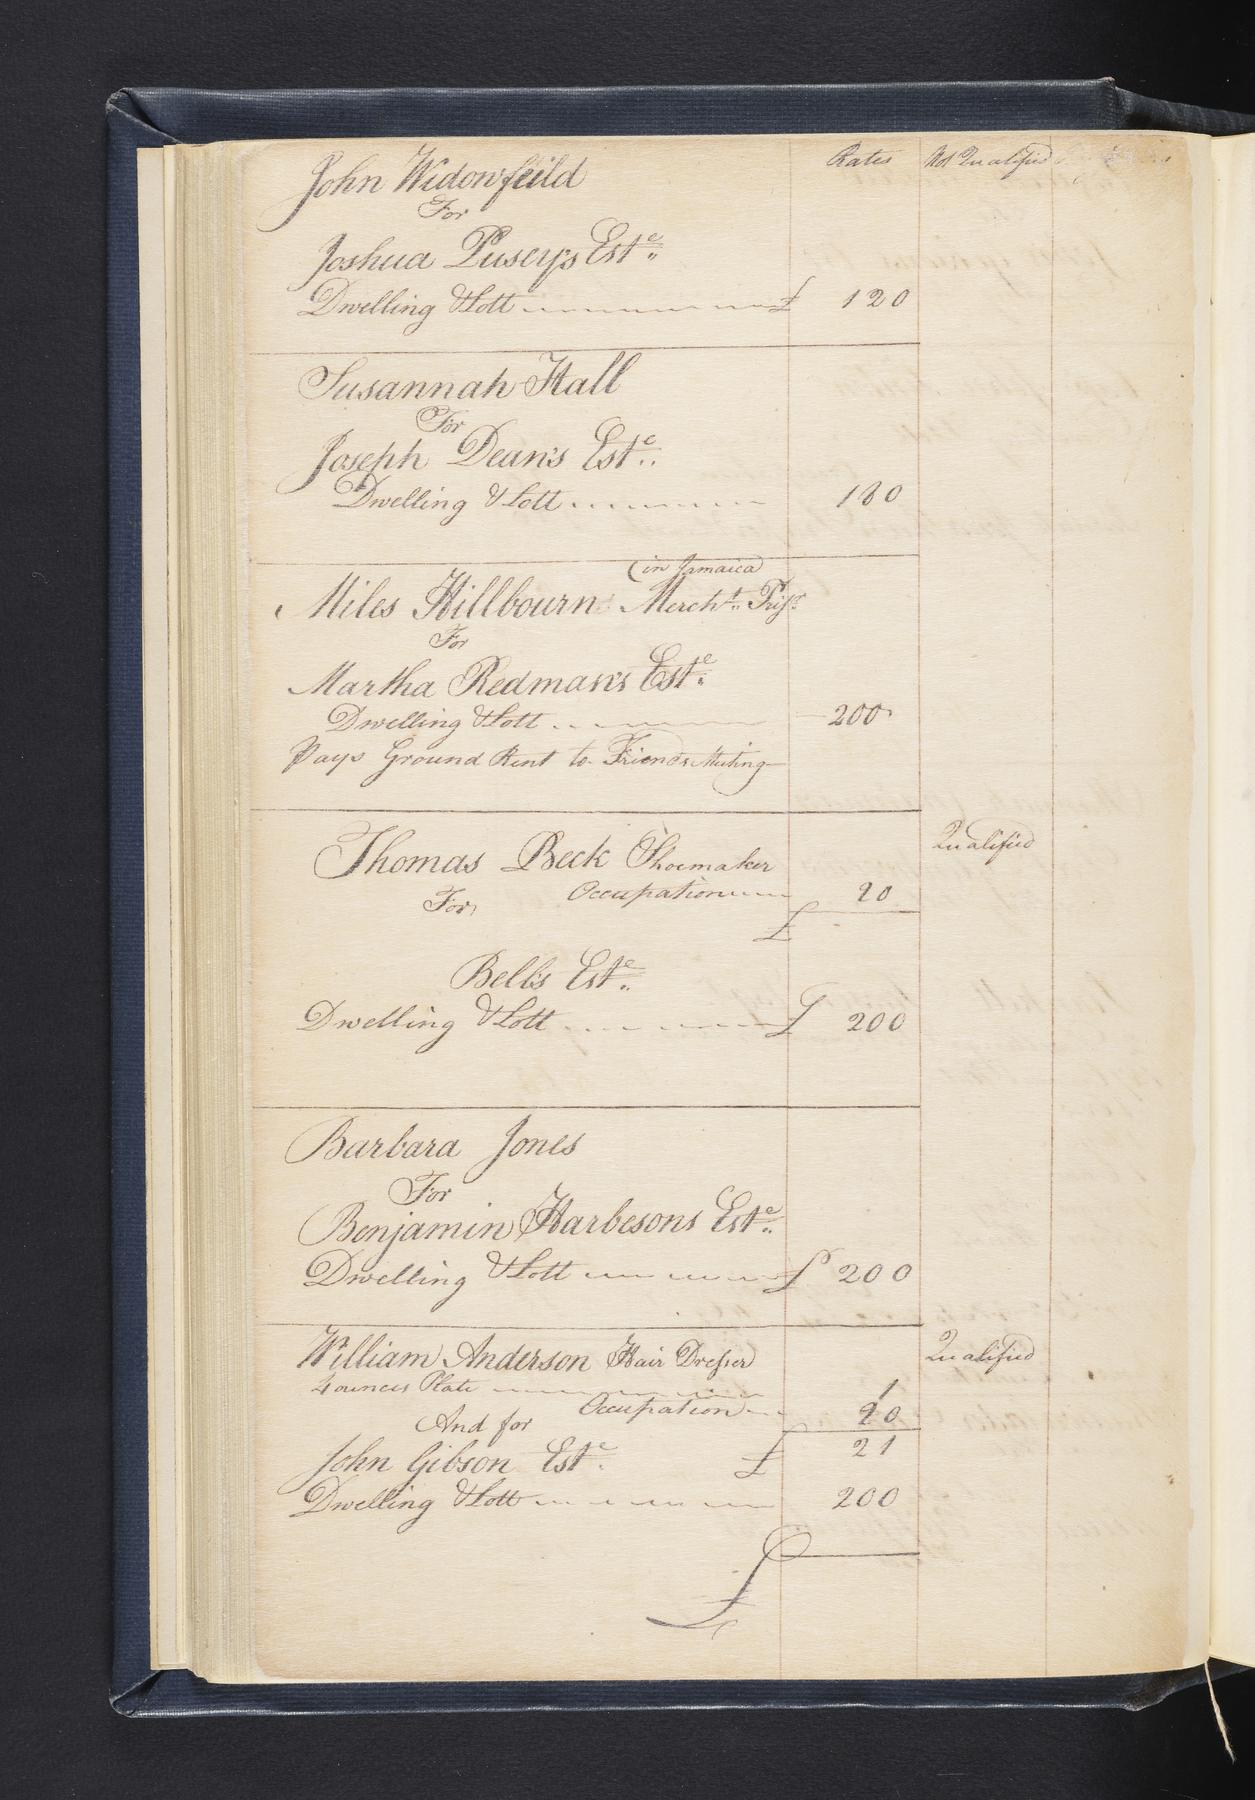 Rates Not Qualified
John Widowfeild
For
Joshua Pusey's Este
Dwelling & Lott £ 120
Susannah Hall
For
Joseph Dean's Este
Dwelling & Lott 180
(in Jamaica)
Miles Hillbourn Mercht. Prisr.
For
Martha Redman's Este
Dwelling & Lott 200
Pays Ground Rent to Friends Meeting
Thomas Beck Shoemaker Qualified
Occupation 20
For
£
Bell's Este
Dwelling & Lott £ 200
Barbara Jones
For
Benjamin Harbesons Este
Dwelling & Lott £ 200
William Anderson Hair Dresser Qualified
4 ounces Plate 1
Occupation 20
And for
£ 21
John Gibson Este
Dwelling & Lott 200
£